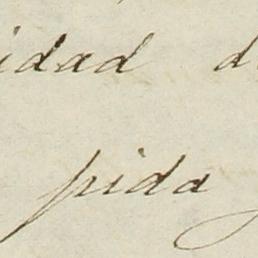 idad d
pida